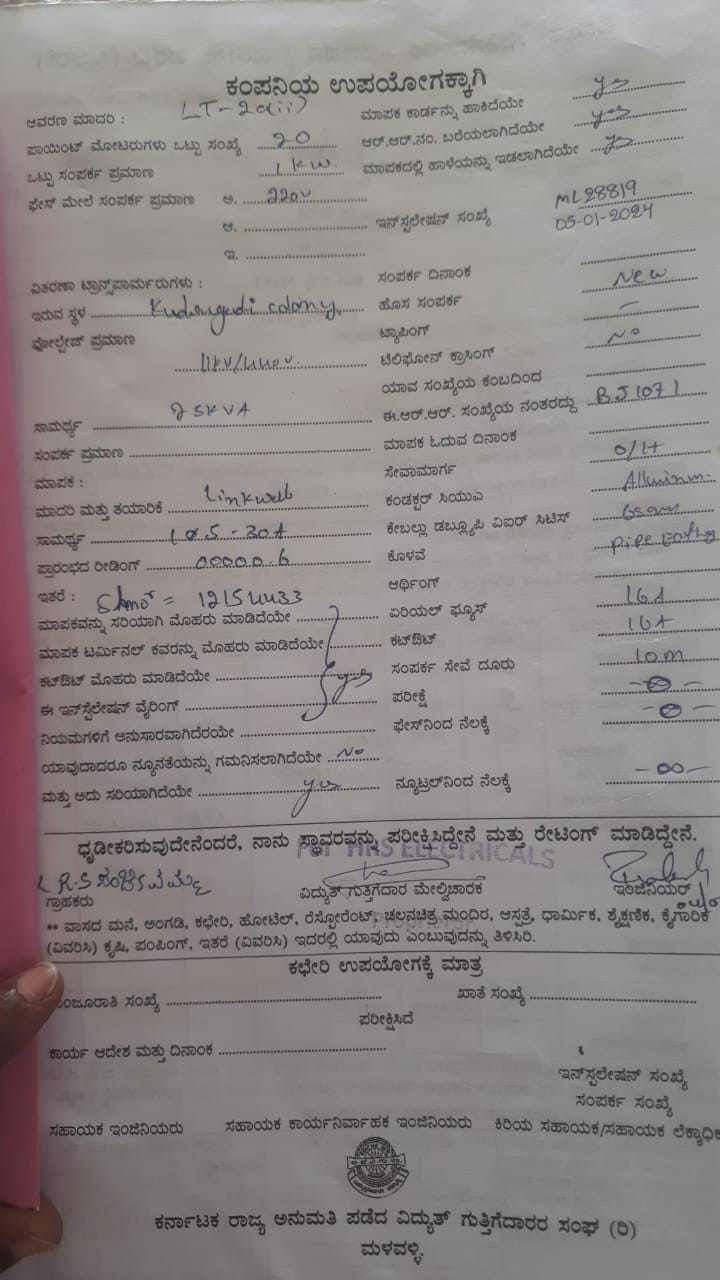 ಕಂಪನಿಯ ಉಪಯೋಗಕ್ಕಾಗಿ
ಆವರಣ ಮಾದರಿ : LT-2a(ii) ಮಾಪಕ ಕಾರ್ಡನ್ನು ಹಾಕಿದೆಯೇ yes
ಪಾಯಿಂಟ್ ಮೋಟರುಗಳು ಒಟ್ಟು ಸಂಖ್ಯೆ 20 ಆರ್.ಆರ್.ನಂ. ಬರೆಯಲಾಗಿದೆಯೇ yes
ಒಟ್ಟು ಸಂಪರ್ಕ ಪ್ರಮಾಣ 1 KW. ಮಾಪಕದಲ್ಲಿ ಹಾಳೆಯನ್ನು ಇಡಲಾಗಿದೆಯೇ yes
ಫೇಸ್ ಮೇಲೆ ಸಂಪರ್ಕ ಪ್ರಮಾಣ ಅ. 220v
ಆ. ಇನ್‌ಸ್ಪಲೇಷನ್ ಸಂಖ್ಯೆ ML28819
05-01-2024
ಇ.
ವಿತರಣಾ ಟ್ರಾನ್ಸ್‌ಪಾರ್ಮರುಗಳು : ಸಂಪರ್ಕ ದಿನಾಂಕ
ಇರುವ ಸ್ಥಳ colony ಹೊಸ ಸಂಪರ್ಕ New
ವೋಲ್ಟೇಜ್ ಪ್ರಮಾಣ 11KV/440v. ಟ್ಯಾಪಿಂಗ್ –
ಟೆಲಿಫೋನ್ ಕ್ರಾಸಿಂಗ್ No
ಯಾವ ಸಂಖ್ಯೆಯ ಕಂಬದಿಂದ
ಸಾಮರ್ಥ್ಯ 25KVA ಈ.ಆರ್.ಆರ್. ಸಂಖ್ಯೆಯ ನಂತರದ್ದು BJ1071
ಸಂಪರ್ಕ ಪ್ರಮಾಣ ಮಾಪಕ ಓದುವ ದಿನಾಂಕ
ಮಾಪಕ : ಸೇವಾಮಾರ್ಗ O/H
ಮಾದರಿ ಮತ್ತು ತಯಾರಿಕೆ Linkwell ಕಂಡಕ್ಟರ್ ಸಿಯುಎ
ಸಾಮರ್ಥ್ಯ 30A ಕೇಬಲ್ಲು ಡಬ್ಲ್ಯೂಪಿ ವಿಐರ್ ಸಿಟಿಸ್
ಪ್ರಾರಂಭದ ರೀಡಿಂಗ್ 00000.6 ಕೊಳವೆ
ಇತರೆ : = 12154433 ಆರ್ಥಿಂಗ್
ಮಾಪಕವನ್ನು ಸರಿಯಾಗಿ ಮೊಹರು ಮಾಡಿದೆಯೇ ಏರಿಯಲ್ ಫ್ಯೂಸ್ 16A
ಮಾಪಕ ಟರ್ಮಿನಲ್ ಕವರನ್ನು ಮೊಹರು ಮಾಡಿದೆಯೇ ಕಟ್‌ಔಟ್ 16A
ಕಟ್‌ಔಟ್ ಮೊಹರು ಮಾಡಿದೆಯೇ yes ಸಂಪರ್ಕ ಸೇವೆ ದೂರು 10m
ಈ ಇನ್‌ಸ್ಪೆಲೇಷನ್ ವೈರಿಂಗ್ ಪರೀಕ್ಷೆ
ನಿಯಮಗಳಿಗೆ ಅನುಸಾರವಾಗಿದೆರಯೇ ಫೇಸ್‌ನಿಂದ ನೆಲಕ್ಕೆ
ಯಾವುದಾದರೂ ನ್ಯೂನತೆಯನ್ನು ಗಮನಿಸಲಾಗಿದೆಯೇ No
ಮತ್ತು ಅದು ಸರಿಯಾಗಿದೆಯೇ yes ನ್ಯೂಟ್ರಲ್‌ನಿಂದ ನೆಲಕ್ಕೆ –∞–
ಧೃಡೀಕರಿಸುವುದೇನೆಂದರೆ, ನಾನು ಸ್ಥಾವರವನ್ನು ಪರೀಕ್ಷಿಸಿದ್ದೇನೆ ಮತ್ತು ರೇಟಿಂಗ್ ಮಾಡಿದ್ದೇನೆ.
For HRS ELECTRICALS
ಗ್ರಾಹಕರು ವಿದ್ಯುತ್ ಗುತ್ತಿಗೆದಾರ ಮೇಲ್ವಿಚಾರಕ ಇಂಜಿನಿಯರ್
** ವಾಸದ ಮನೆ, ಅಂಗಡಿ, ಕಛೇರಿ, ಹೋಟೆಲ್, ರೆಸ್ಟೋರೆಂಟ್, ಚಲನಚಿತ್ರ ಮಂದಿರ, ಆಸ್ಪತ್ರೆ, ಧಾರ್ಮಿಕ, ಶೈಕ್ಷಣಿಕ, ಕೈಗಾರಿಕೆ
(ವಿವರಿಸಿ) ಕೃಷಿ, ಪಂಪಿಂಗ್, ಇತರೆ (ವಿವರಿಸಿ) ಇದರಲ್ಲಿ ಯಾವುದು ಎಂಬುವುದನ್ನು ತಿಳಿಸಿರಿ.
ಕಛೇರಿ ಉಪಯೋಗಕ್ಕೆ ಮಾತ್ರ
ಮಂಜೂರಾತಿ ಸಂಖ್ಯೆ ಖಾತೆ ಸಂಖ್ಯೆ
ಪರೀಕ್ಷಿಸಿದೆ
ಕಾರ್ಯ ಆದೇಶ ಮತ್ತು ದಿನಾಂಕ
ಇನ್‌ಸ್ಪಲೇಷನ್ ಸಂಖ್ಯೆ
ಸಂಪರ್ಕ ಸಂಖ್ಯೆ
ಸಹಾಯಕ ಇಂಜಿನಿಯರು ಸಹಾಯಕ ಕಾರ್ಯನಿರ್ವಾಹಕ ಇಂಜಿನಿಯರು ಕಿರಿಯ ಸಹಾಯಕ/ಸಹಾಯಕ
ಕರ್ನಾಟಕ ರಾಜ್ಯ ಅನುಮತಿ ಪಡೆದ ವಿದ್ಯುತ್ ಗುತ್ತಿಗೆದಾರರ ಸಂಘ (ರಿ)
ಮಳವಳ್ಳಿ.